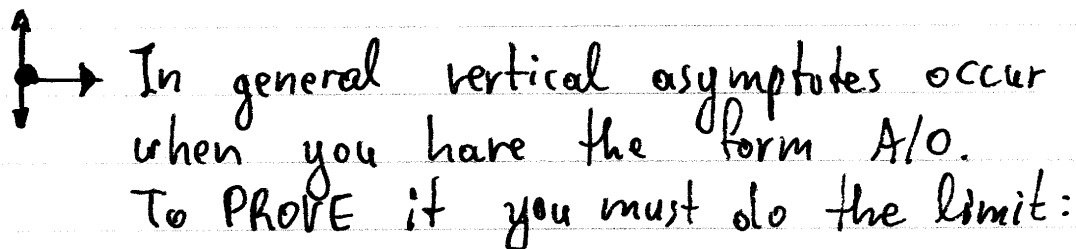 In general vertical asymptotes occur
when you have the form A/0.
To PROVE it you must do the limit: